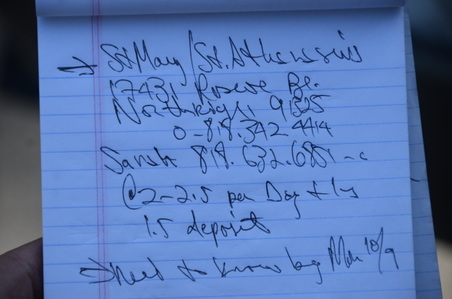 → St Mary/St. Athanasius
17431 Roscoe Bl.
Northridge 91325
O-818.342.4414
Sarah 818.632.6851-c
@2-2.5 per Day +
1.5 deposit
→ Need to know by Mon 10/9